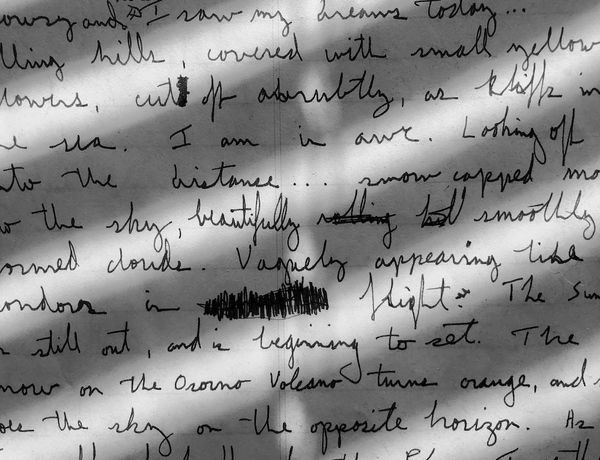 and I saw my dreams today...
lling hills, covered with small yellow
lowers, cut off abruptly, as kliffs in
he sea. I am in awe. Looking off
nto the distance... snow capped mo
o the sky, beautifully smoothly
ormed clouds. Vaguely appearing like
ondors in flight. The Sun
s still out, and is beginning to set. The
now on the Osorno Volcano turns orange, and s
oes the sky on the opposite horizon. As